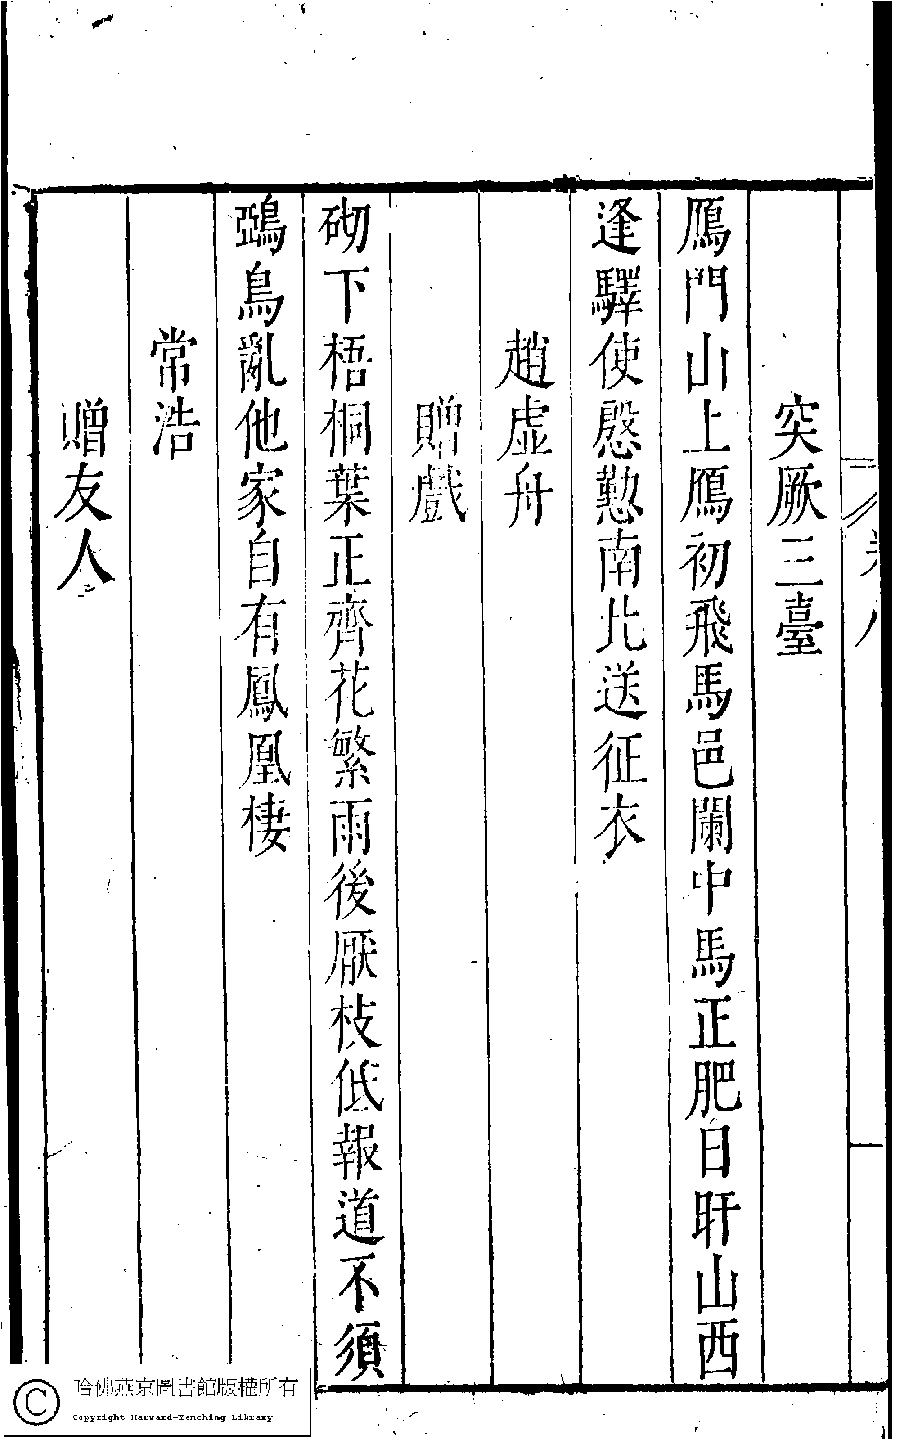 突厥三臺
鴈門山上鴈初飛馬邑闌中馬正肥日旰山西
逢驛使慇懃南北送征衣
趙虛舟
贈戲
砌下梧桐葉正齊花繁雨後厭枝低報道不須
鵶鳥亂他家自有鳳凰棲
常浩
贈友人
哈佛燕京圖書館版權所有
Copyright Harvard-Yenching Library